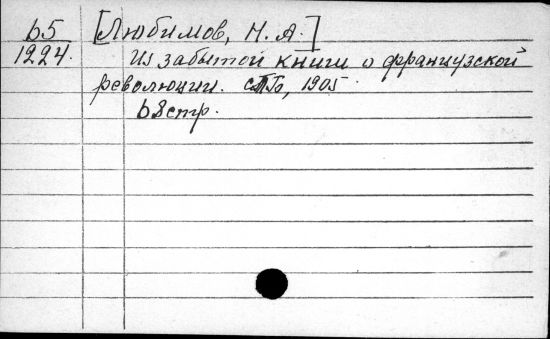 65 [Любимов, Н. А.]
1224. Из забытой книги о французской
революции. СПБ, 1905.
68 стр.